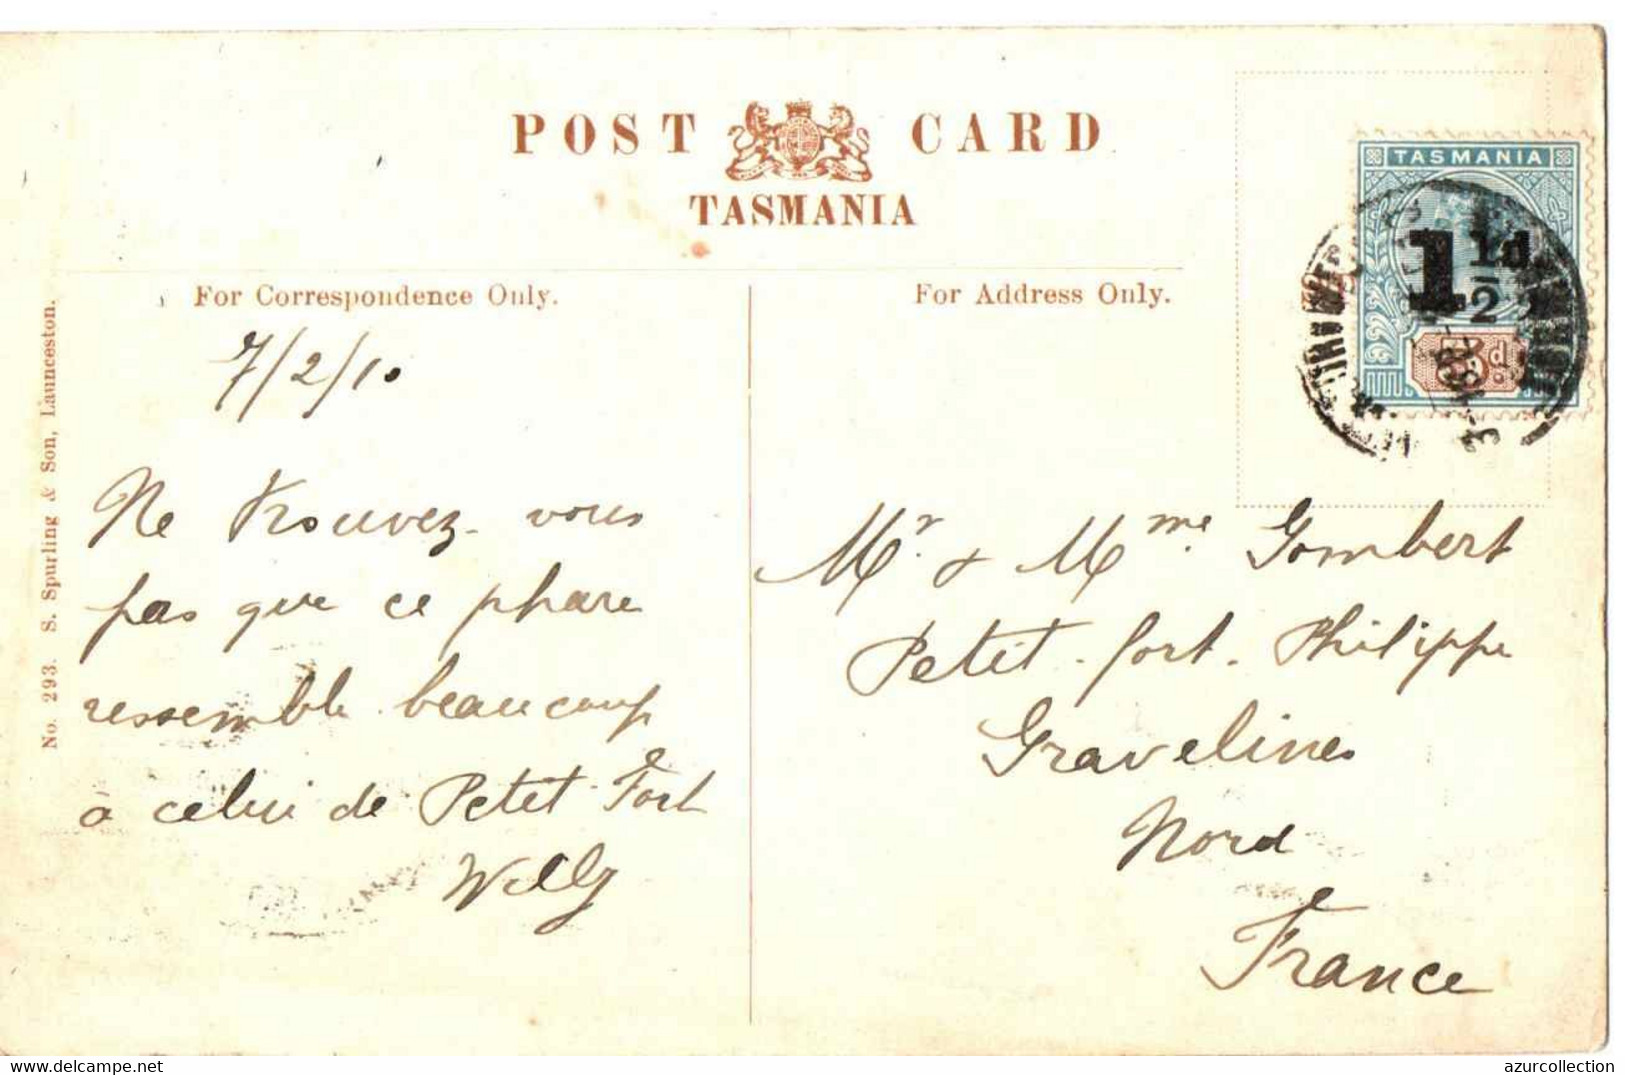 POST CARD
TASMANIA
For Correspondence Only.
For Address Only.
TASMANIA
1½d
5d
7/2/10
Ne trouvez-vous
pas que ce phare
ressemble beaucoup
à celui de Petit Fort
Willy
Mr & Mme Gombert
Petit-fort-Philippe
Gravelines
Nord
France
No. 293. S. Spurling & Son, Launceston.
delcampe.net
azurcollection